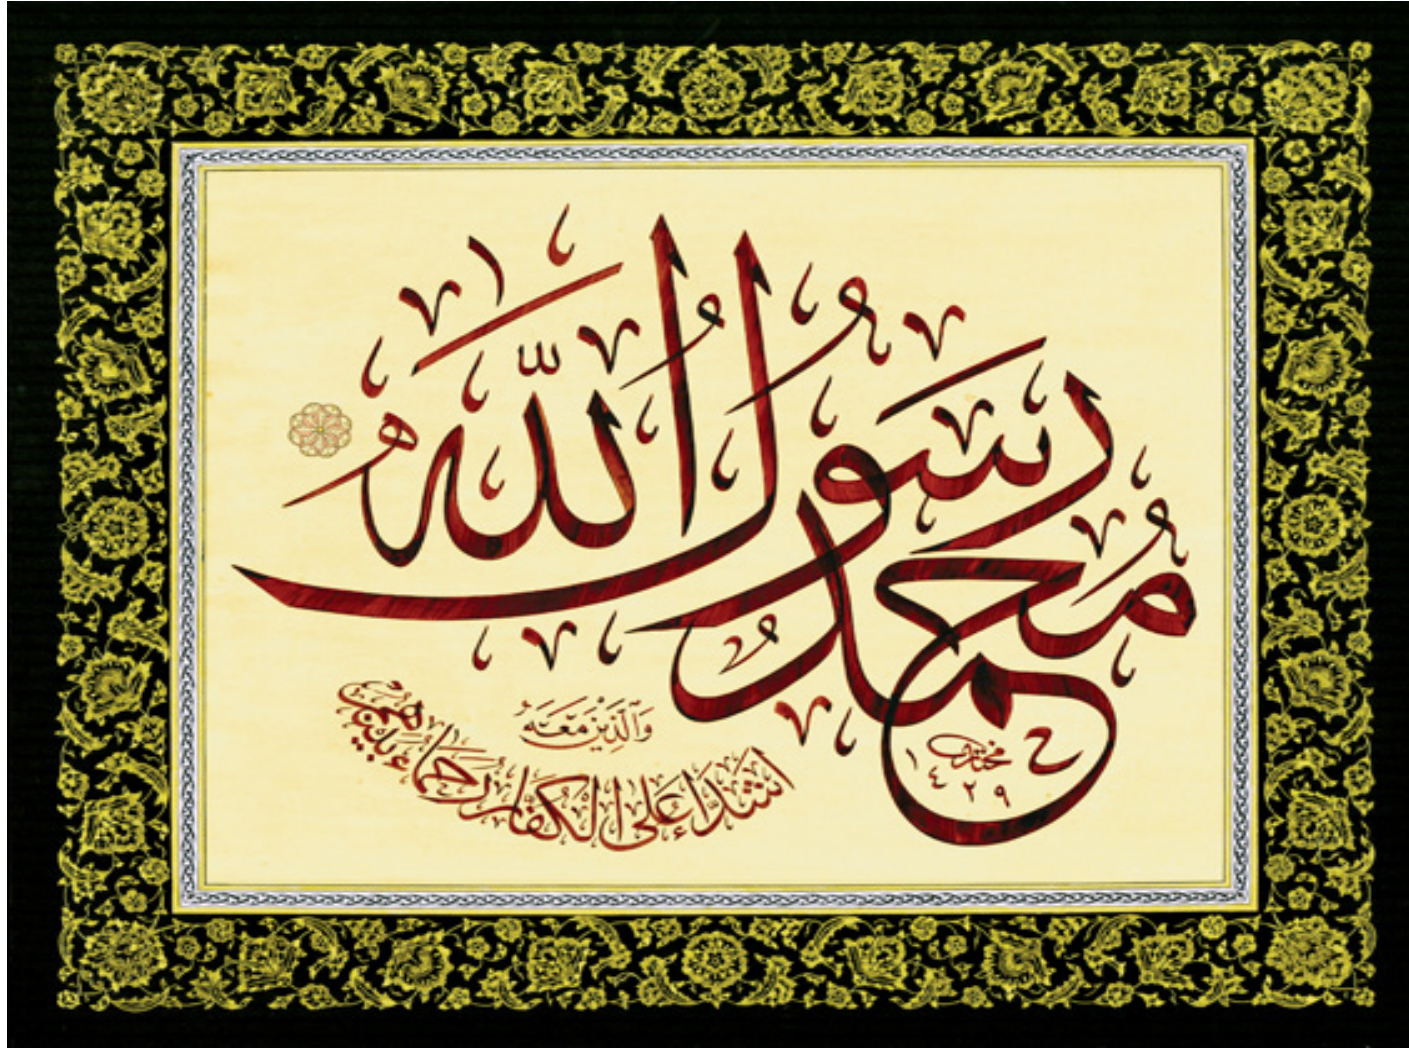 مُحَمَّدٌ رَسُولُ اللَّهِ
وَالَّذِينَ مَعَهُ
أَشِدَّاءُ عَلَى الْكُفَّارِ رُحَمَاءُ بَيْنَهُمْ
مختار
١٤٢٩